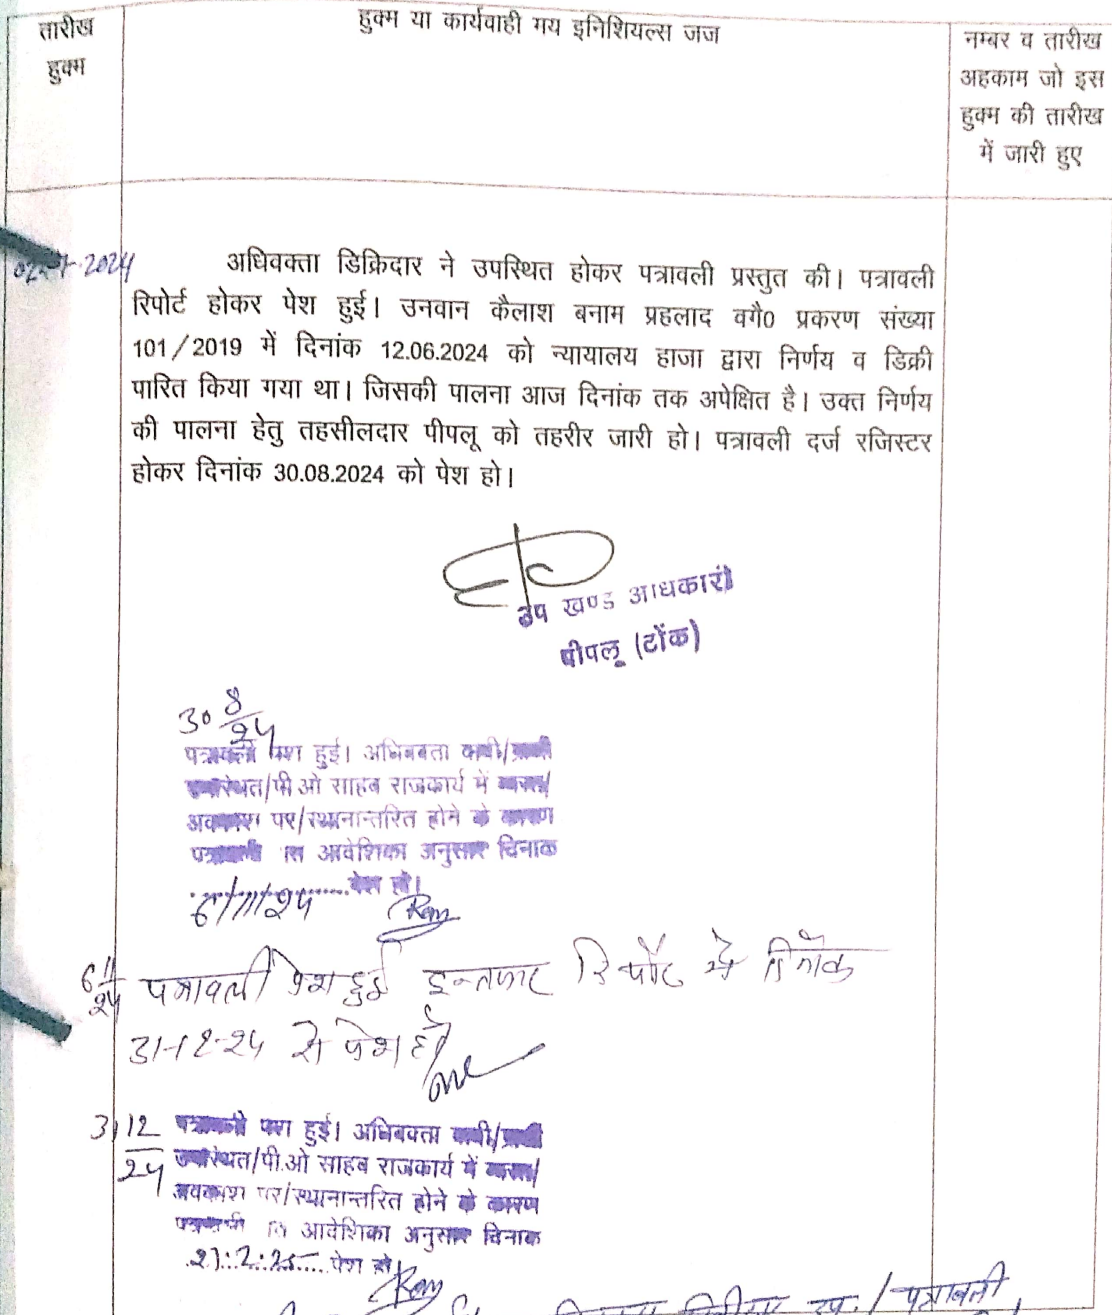 तारीख
हुक्म
हुक्म या कार्यवाही गय इनिशियल्स जज
नम्बर व तारीख
अहकाम जो इस
हुक्म की तारीख
में जारी हुए
2024
अधिवक्ता डिक्रिदार ने उपस्थित होकर पत्रावली प्रस्तुत की। पत्रावली
रिपोर्ट होकर पेश हुई। उनवान कैलाश बनाम प्रहलाद वगै0 प्रकरण संख्या
101/2019 में दिनांक 12.06.2024 को न्यायालय हाजा द्वारा निर्णय व डिक्री
पारित किया गया था। जिसकी पालना आज दिनांक तक अपेक्षित है। उक्त निर्णय
की पालना हेतु तहसीलदार पीपलू को तहरीर जारी हो। पत्रावली दर्ज रजिस्टर
होकर दिनांक 30.08.2024 को पेश हो।
उप खण्ड अधिकारी
पीपलू (टोंक)
30 8/24
पत्रावली पेश हुई। अधिवक्ता वादी/प्रार्थी
उपस्थित/पी.ओ साहब राजकार्य में व्यस्त/
अवकाश पर/स्थानान्तरित होने के कारण
पत्रावली आदेशिका अनुसार दिनांक
6/11/24 पेश हो।
6 11/24 पत्रावली पेश हुई इन्तजार रिपोर्ट में दिनांक
31-12-24 को पेश हो
31 12/24
पत्रावली पेश हुई। अधिवक्ता वादी/प्रार्थी
उपस्थित/पी.ओ साहब राजकार्य में व्यस्त/
अवकाश पर/स्थानान्तरित होने के कारण
पत्रावली आदेशिका अनुसार दिनांक
2:25 पेश हो
पत्रावली